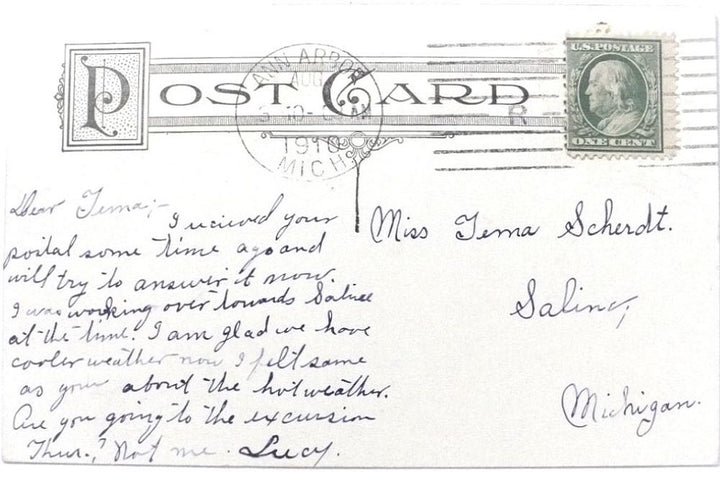 POST CARD
ANN ARBOR
AUG
1910
MICH.
R
U.S. POSTAGE
ONE CENT
Dear Tema;-
I recieved your
postal some time ago and
will try to answer it now.
I was working over towards Saline
at the time. I am glad we have
cooler weather now I felt same
as you about the hot weather.
Are you going to the excursion
Thur.? Not me. Lucy.
Miss Tema Scherdt.
Saline,
Michigan.